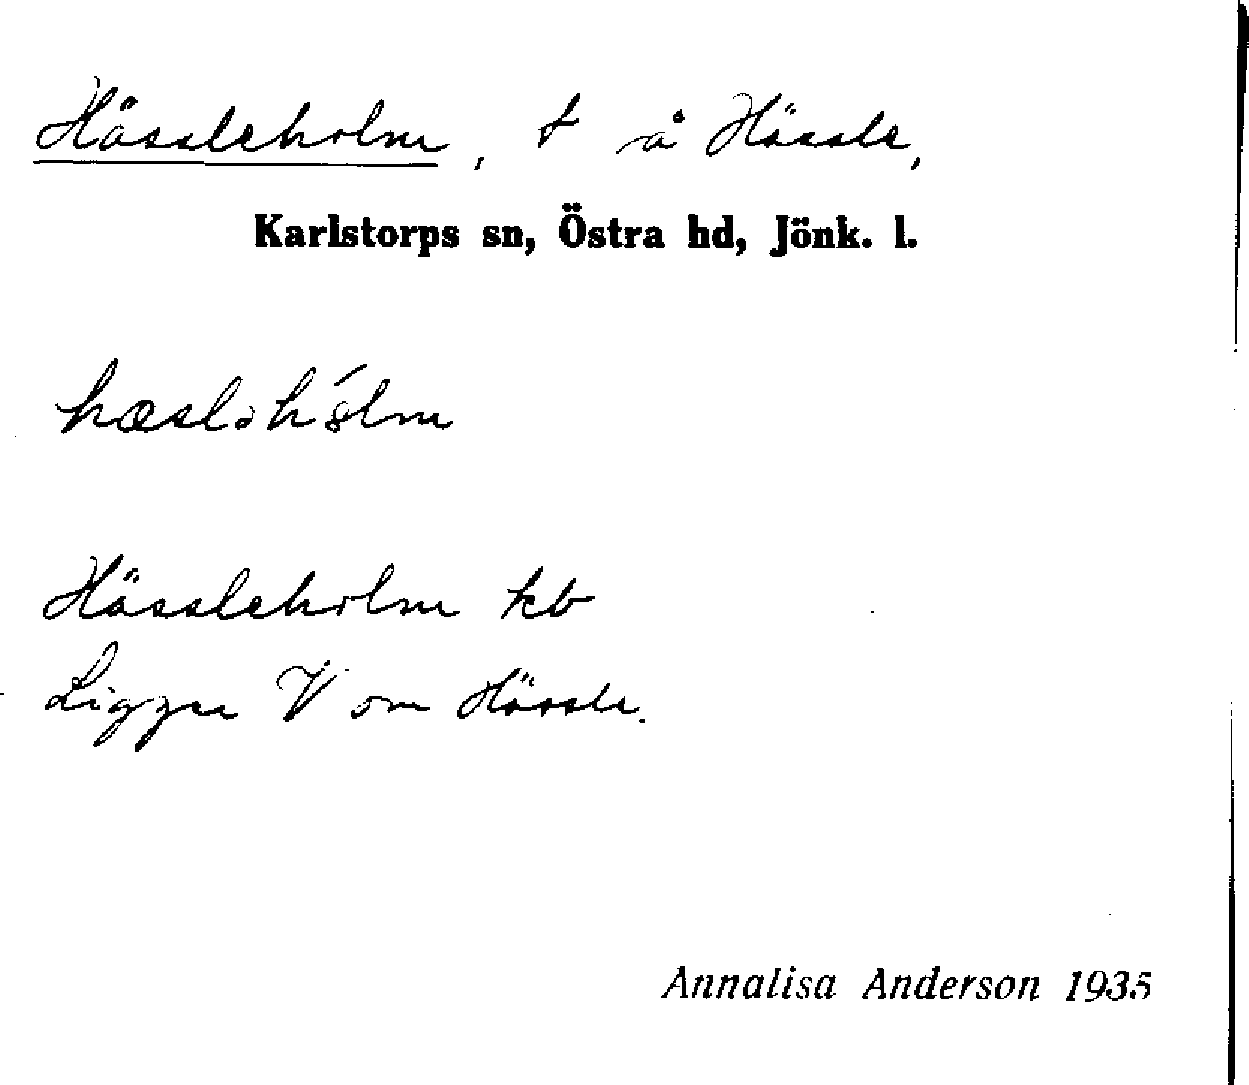 Hässleholm, t å Hässle,
Karlstorps sn, Östra hd, Jönk. l.
hæsləhólm
Hässleholm kb
Ligger V om Hässle.
Annalisa Anderson 1935